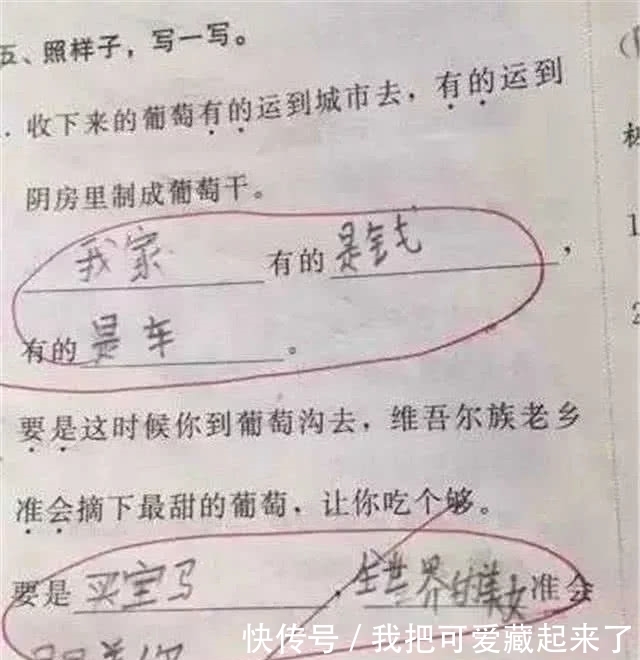 五、照样子，写一写。
收下来的葡萄有的运到城市去，有的运到
阴房里制成葡萄干。
我家 有的 是钱，
有的 是车。
要是这时候你到葡萄沟去，维吾尔族老乡
准会摘下最甜的葡萄，让你吃个够。
要是 买宝马，全世界的美女 准会
快传号/我把可爱藏起来了